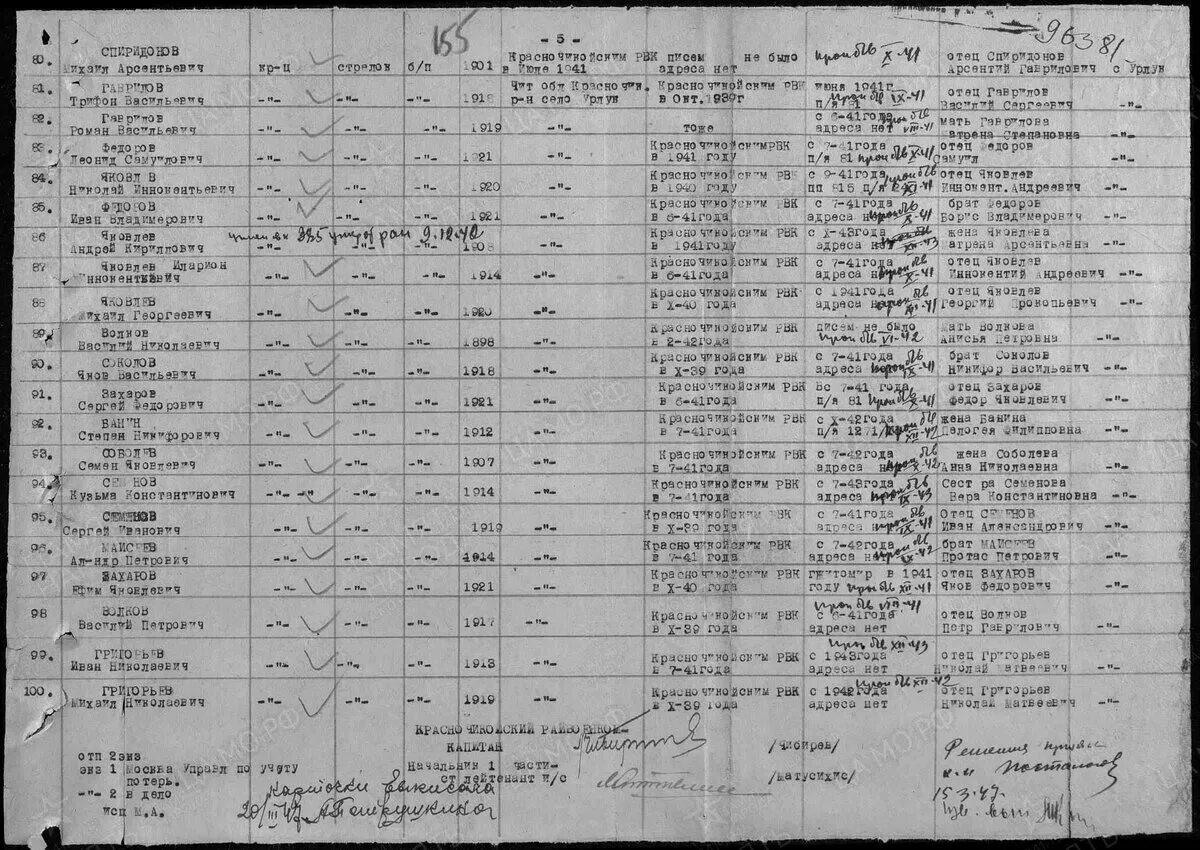 155
- 5 -
96381
80. СПИРИДОНОВ Красночикойским РВК писем не было проп б/в X-41 отец Спиридонов
Михаил Арсентьевич кр-ц стрелок б/п 1901 в Июле 1941 адреса нет Арсентий Гаврилович с Урлук
81. ГАВРИЛОВ Чит обл Красночик. Красночикойским РВК июня 1941г отец Гаврилов
Трифон Васильевич -"- -"- -"- 1918 р-н село Урлук в Окт.1939г п/я 81 проп б/в IX-41 Василий Сергеевич -"-
82. Гаврилов с 6-41года проп б/в мать Гаврилова
Роман Васильевич -"- -"- -"- 1919 -"- тоже адреса нет VIII-41 атрена Степановна -"-
83. Федоров КрасночикойскимРВК с 7-41года отец Федоров
Леонид Самуилович -"- -"- -"- 1921 -"- в 1941 году п/я 81 проп б/в X-41 Самуил -"-
84. ЯКОВЛ В Красночикойским РВК с 9-41года проп б/в отец Яковлев
Николай Иннокентьевич -"- -"- -"- 1920 -"- в 1940 году пп 815 п/я XI-41 Иннокент.Андреевич -"-
85. ФЕДОРОВ Красночикойским РВК с 7-41года проп б/в брат Федоров
Иван Владимерович -"- -"- -"- 1921 -"- в 6-41года адреса нет X-41 Борис Владимерович -"-
86 Яковлев 335 9.12.42 Красночикойским РВК с X-43года жена Яковлева
Андрей Кириллович -"- -"- -"- 1908 -"- в 1941году адреса нет XII-43 атрена Арсентьевна -"-
87 Яковлев Иларион Красночикойским РВК с 7-41года отец Яковлев
Иннокентиевич -"- -"- -"- 1914 -"- в 6-41года адреса не проп б/в X-41 Иннокентий Андреевич -"-
88 ЯКОВЛЕВ Красночикойским РВК с 1941года отец Яковлев
Михаил Георгеевич -"- -"- -"- 1920 -"- в X-40 года адреса проп б/в XII-41 Георгий Прокопьевич -"-
89. Волков Красночикойским РВК писем не было мать Волкова
Василий Николаевич -"- -"- -"- 1898 -"- в 2-42года проп б/в VI-42 Анисья Петровна -"-
90. СОКОЛОВ Красночикойским РВК с 7-41года брат Соколов
Яков Васильевич -"- -"- -"- 1918 -"- в X-39 года адреса проп б/в IX-41 Никифор Васильевич -"-
91. Захаров Красночикойским РВК Вс 7-41 года отец Захаров
Сергей Федорович -"- -"- -"- 1921 -"- в 6-41года п/я 81 проп б/в X-41 Федор Яковлевич -"-
92. БАНИН Красночикойским РВК с X-42года жена Банина
Степан Никифорович -"- -"- -"- 1912 -"- в 7-41года п/я 1271 проп б/в XII-42 Пелогея Филипповна -"-
93. СОБОЛЕВ Красночикойским РВК с 7-42года жена Соболева
Семен Яковлевич -"- -"- -"- 1907 -"- в 7-41года адреса н проп б/в X-42 Анна Николаевна -"-
94. СЕМ НОВ Красночикойским РВК с 7-43года Сест ра Семенова
Кузьма Константинович -"- -"- -"- -"- 1914 -"- в 7-41года адреса проп б/в IX-43 Вера Константиновна -"-
95. СЕМЕНОВ Красночикойским РВК с 7-41года Отец СЕМЕНОВ
Сергей Иванович -"- -"- -"- 1919 -"- в X-39 года адреса н проп б/в IX-41 Иван Александрович -"-
96. МАИСЕЕВ Красночикойским РВК с 7-42года брат МАИСЕЕВ
Ал-ндр Петрович -"- -"- -"- 1914 -"- в 7-41 года адреса н проп б/в IX-42 Протас Петрович -"-
97 ЗАХАРОВ Красночикойским РВК гжитомир в 1941 отец ЗАХАРОВ
Ефим Яковлевич -"- -"- -"- 1921 -"- в X-40 года году проп б/в XII-41 Яков Федорович -"-
98 ВОЛКОВ Красночикойским РВК проп б/в VIII-41 с 6-41года отец Волков
Василий Петрович -"- -"- -"- 1917 -"- в X-39 года адреса нет Петр Гаврилович -"-
99. ГРИГОРЬЕВ Красночикойским РВК проп б/в XII-43 с 1943года отец Григорьев
Иван Николаевич -"- -"- -"- 1913 -"- в 7-41года адреса нет Николай Матвеевич -"-
100. ГРИГОРЬЕВ Красночикойским РВК проп б/в XII-42 с 1942года отец Григорьев
Михаил Николаевич -"- -"- -"- 1919 -"- в X-39года адреса нет Николай Матвеевич -"-
КРАСНОЧИКОЙСКИЙ РАЙВОЕНКОМ-
КАПИТАН /Чибирев/
отп 2экз
экз 1 Москва Управл по учету Начальник 1 части-
потерь. ст лейтенант и/с /Матусихис/
-"- 2 в дело
исп М.А.
20/III 47.
15.3.47.